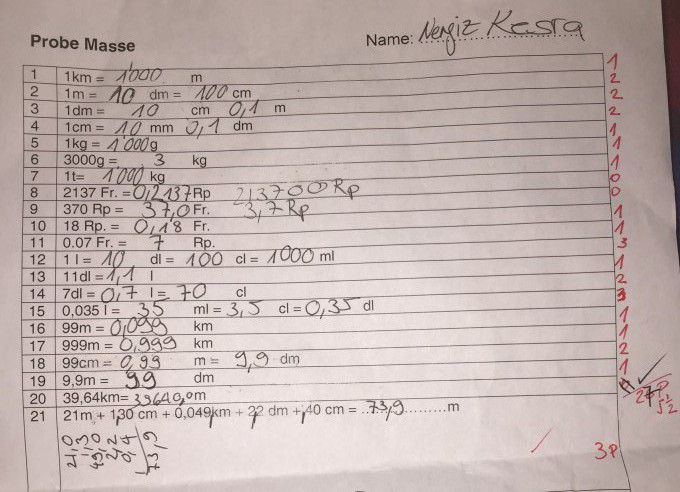 Probe Masse Name: Nergiz Kesra
1 1km = 1'000 m 1
2 1m = 10 dm = 100 cm 2
3 1dm = 10 cm 0,1 m 2
4 1cm = 10 mm 0,1 dm 2
5 1kg = 1'000g 1
6 3000g = 3 kg 1
7 1t= 1'000 kg 1
8 2137 Fr. = 0,2137 Rp 213700 Rp 0
9 370 Rp = 37,0 Fr. 3,7 Rp 0
10 18 Rp. = 0,18 Fr. 1
11 0.07 Fr. = 7 Rp. 1
12 1 l = 10 dl = 100 cl = 1000 ml 3
13 11dl = 1,1 l 1
14 7dl = 0,7 l = 70 cl 2
15 0,035 l = 35 ml = 3,5 cl = 0,35 dl 3
16 99m = 0,099 km 1
17 999m = 0,999 km 1
18 99cm = 0,99 m = 9,9 dm 2
19 9,9m = 99 dm 1
20 39,64km= 39640,0m
21 21m + 1,30 cm + 0,049km + 22 dm + ,40 cm = ..73,9.........m
21,0
1,3
49,0
2,2
0,4
73,9
5 1/2
3P